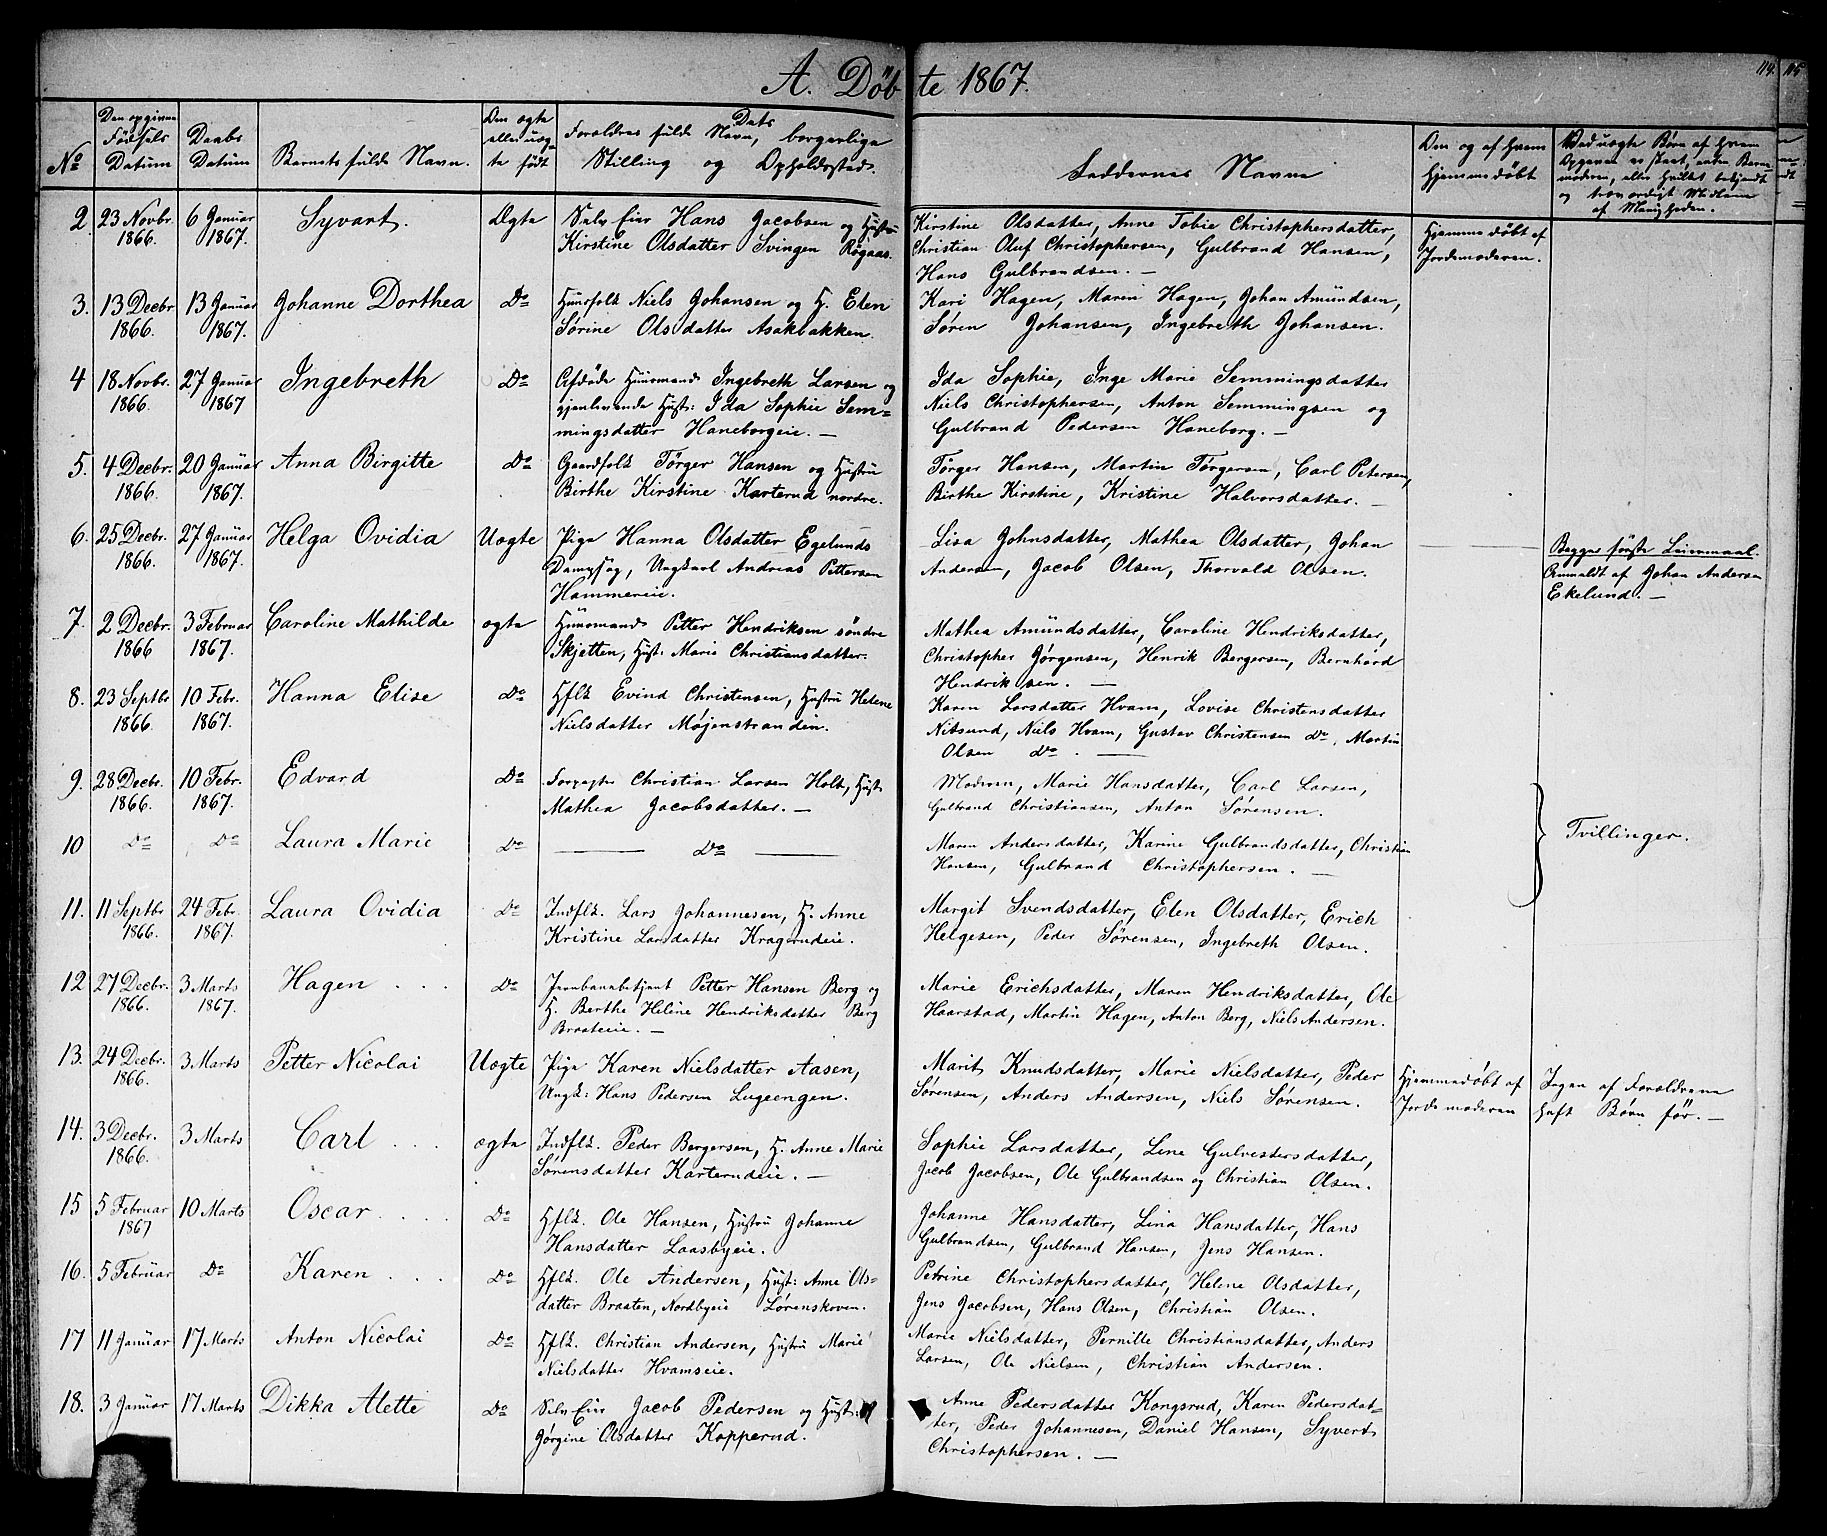 A. Døbte 1867.
114.
115
No
Den opgivne Fødsels Datum
Daabs Datum
Barnets fulde Navn.
Den ægte eller uægte født
Forældres fulde Navn, Dets borgerlige Stilling og Opholdssted.
Faddernes Navne
Om og af hvem hjemmedøbt
2. 23 Novbr. 1866. 6 Januar 1867. Syvart. Ægte Selv Eier Hans Jacobsen og Hustru
Kirstine Olsdatter Svingen Røgaas.
Kirstine Olsdatter, Anne Tobie Christophersdatter,
Christian Oluf Christophersen, Gulbrand Hansen,
Hans Gulbrandsen. —
Hjemmedøbt af
Jordemoderen.
3. 13 Decbr 1866. 13 Januar 1867. Johanne Dorthea Do Huusfolk Niels Johansen og H. Elen
Sørine Olsdatter Asakbakken.
Kari Hagen, Maren Hagen, Johan Amundsen,
Søren Johansen, Ingebreth Johansen.
4 18 Novbr. 1866. 27 Januar 1867 Ingebreth Do Afdøde Huusmand Ingebreth Larsen og
gjenlevende Hust: Ida Sophie Sem=
mingsdatter Haneborgeie. —
Ida Sophie, Inge Marie Semmingsdatter
Niels Christophersen, Anton Semmingsen og
Gulbrand Pedersen Haneborg. —
5. 4 Decbr. 1866. 20 Januar 1867. Anna Birgitte Do Gaardfolk Törger Hansen og Hustru
Birthe Kirstine Karterud nordre.
Törger Hansen, Martin Törgersen, Carl Petersen,
Birthe Kirstine, Kristine Halvorsdatter.
6. 25 Decbr. 1866. 27 Januar 1867. Helga Ovidia Uægte Pige Hanna Olsdatter Egelunds
Dampsag, Ungkarl Andreas Pettersen
Hammereie.
Lisa Johnsdatter, Mathea Olsdatter, Johan
Andersen, Jacob Olsen, Thorvald Olsen.
Begges første Leiermaal.
Anmeldt af Johan Andersen
Ekelund. —
7. 2 Decbr. 1866 3 Februar 1867. Caroline Mathilde ægte Huusmand Petter Hendriksen söndre
Skjetten, Hust: Marie Christiansdatter.
Mathea Amundsdatter, Caroline Hendriksdatter,
Christopher Jørgensen, Henrik Bergersen, Bernhard
Hendriksen. —
8. 23 Septbr 1866. 10 Febr. 1867. Hanna Elise Do Hflk Evind Christensen, Hustru Helene
Nielsdatter Møjenstranden.
Karen Larsdatter Hvam, Lovise Christensdatter
Nitsund, Niels Hvam, Gustav Christensen Do, Martin
Olsen Do. —
9. 28 Decbr. 1866. 10 Febr. 1867. Edvard Do Forpagter Christian Larsen Holt, Hust
Mathea Jacobsdatter. —
Moderen, Marie Hansdatter, Carl Larsen,
Gulbrand Christiansen, Anton Sørensen.
10 Do Do Laura Marie Do — Do —
Maren Andersdatter, Karine Gulbrandsdatter, Christian
Hansen, Gulbrand Christophersen. —
Tvillinger.
11. 11 Septbr 1866. 24 Febr. 1867. Laura Ovidia Do Indflk. Lars Johannesen, H. Anne
Kristine Larsdatter Kragerudeie.
Margit Svendsdatter, Elen Olsdatter, Erich
Helgesen, Peder Sørensen, Ingebreth Olsen.
12 27 Decbr. 1866. 3 Marts 1867. Hagen . . . Do Jernbanebetjent Petter Hansen Berg og
H. Berthe Helene Hendriksdatter Berg
Braateie. —
Marie Erichsdatter, Maren Hendriksdatter, Ole
Haarstad, Martin Hagen, Anton Berg, Niels Andersen.
13. 24 Decbr. 1866. 3 Marts Petter Nicolai Uægte Pige Karen Nielsdatter Aasen,
Ungk: Hans Pedersen Lugeengen.
Marit Knudsdatter, Marie Nielsdatter, Peder
Sørensen, Anders Andersen, Niels Sørensen.
Hjemmedøbt af
Jordemoderen
Ingen af Forældrene
haft Børn før. —
14. 3 Decbr. 1866. 3 Marts Carl . . . ægte Indflk. Peder Bergersen, H. Anne Marie
Sørensdatter Karterudeie. —
Sophie Larsdatter, Line Gulvestersdatter,
Jacob Jacobsen, Ole Gulbrandsen og Christian Olsen.
15 5 Februar 1867 10 Marts Oscar . . . Do Hflk. Ole Hansen, Hustru Johanne
Hansdatter Laasbyeie.
Johanne Hansdatter, Lina Hansdatter, Hans
Gulbrandsen, Gulbrand Hansen, Jens Hansen.
16. 5 Februar Do Karen . . . Do Hflk. Ole Andersen, Hust: Anne Ols=
datter Braaten, Nordbyeie Lørenskoven.
Petrine Christophersdatter, Helene Olsdatter,
Jens Jacobsen, Hans Olsen, Christian Olsen.
17 11 Januar 17 Marts Anton Nicolai Do Hflk. Christian Andersen, Hustru Marie
Nielsdatter Hvamseie.
Marie Nielsdatter, Pernille Christiansdatter, Anders
Larsen, Ole Nielsen, Christian Andersen.
18. 3 Januar 17 Marts Dikka Alette Do Selv Eier Jacob Pedersen og Hust:
Jørgine Olsdatter Kopperud.
Anne Pedersdatter Kongsrud, Karen Pedersdat=
ter, Peder Johannesen, Daniel Hansen, Syvert
Christophersen. —